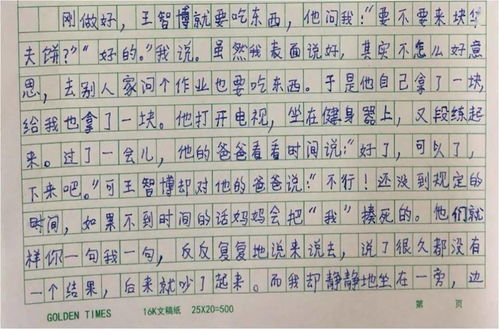 刚做好，王智博就要吃东西，他问我：“要不要来块华
夫饼？”“好的。”我说。虽然我表面说好，其实不怎么好意
思，去别人家问个作业也要吃东西。于是他自己拿了一块，
给我也拿了一块。他打开电视，坐在健身器上，又段练起
来。过了一会儿，他的爸爸看看时间说：“好了，可以了，
下来吧。”可王智博却对他的爸爸说：“不行！还没到规定的
时间，如果不到时间的话妈妈会把“我”揍死的。他们就
样你一句我一句，反反复复地说来说去，说了很久都没有
一个结果，后来就吵了起来。而我却静静地坐在一旁，边
GOLDEN TIMES 16K文稿纸 25X20=500 第 页